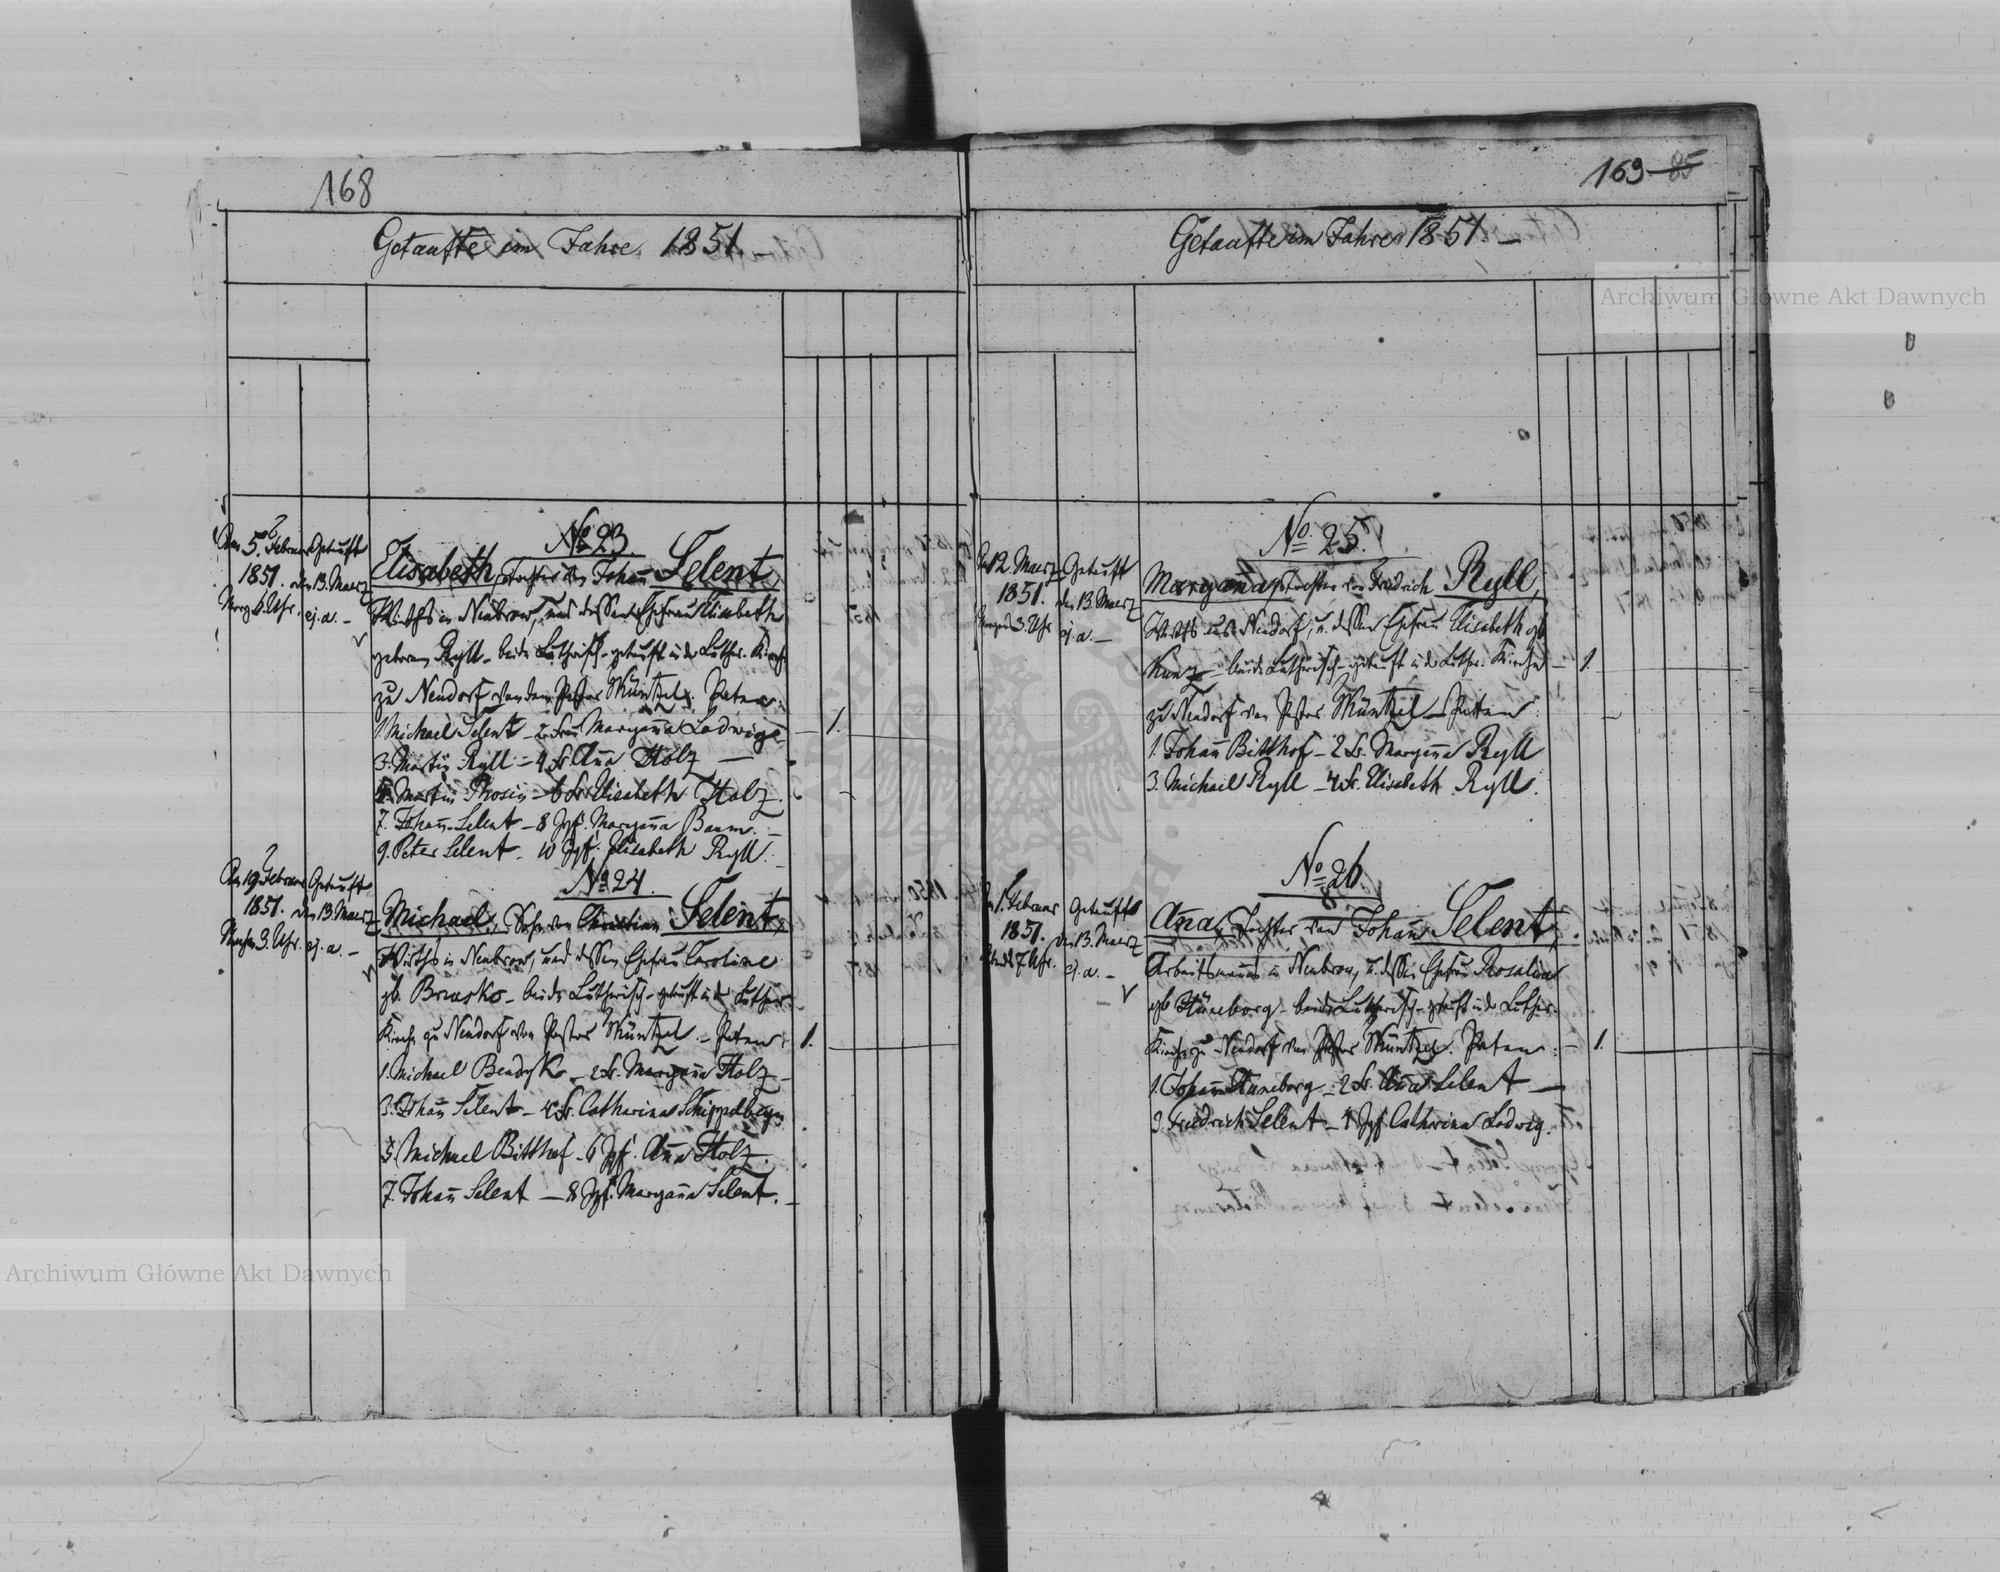 168
Getaufte im Jahre 1851 —
Den 5. Februar
1851.
Morg. 6. Uhr.
Getauft
den 13. Maerz
ej. a. —
No 23
Elisabeth, Tochter des Johann Selent,
Wirths in Neubrow, und dessen Ehefrau Elisabeth
geboren Ryll - beide Lutherisch - getauft in der Luther. Kirche
zu Neudorf von dem Pastor Müntzel. Paten:
1. Michael Selent — 2. Frau Marganna Ludwig
3. Martin Ryll — 4 Fr. Anna Holz —
5. Martin — 6 Fr. Elisabeth Holz.
7. Johann Selent — 8 Jgf. Marganna Baum. —
9. Peter Selent — 10 Jgf. Elisabeth Ryll.
1.
Den 19 Februar
1851.
3. Uhr.
Getauft
den 13. Maerz
ej. a. —
No 24.
Michael, Sohn von Christian Selent,
Wirths in Neubrow, und dessen Ehefrau Caroline
gb. - beide Lutherisch - getauft in der Luther.
Kirche zu Neudorf von Pastor Müntzel. — Paten:
1. Michael Bendyk — 2 Fr. Marganna Holz —
3. Johann Selent — 4 Fr. Catharina
5. Michael Bitthof — 6 Jgf. Anna Holz.
7. Johann Selent — 8 Jgf. Marganna Selent. —
1.
169 85
Getaufte im Jahre 1851 —
12. Maerz
1851.
3. Uhr
Getauft
den 13. Maerz
ej. a. —
No. 25.
Marganna, Tochter von Friedrich Ryll,
Wirths aus Neudorf, u. dessen Ehefrau Elisabeth gb
Kunz — beide Lutherisch - getauft in der Luther. Kirche —
zu Neudorf von Pastor Müntzel — Paten:
1. Johann Bitthof — 2 Fr. Marganna Ryll
3. Michael Ryll — 4 Fr. Elisabeth Ryll.
1.
1. Februar
1851.
7. Uhr.
Getauft
den 13. Maerz
ej. a. —
No 26
Anna, Tochter von Johann Selent,
Arbeitsmanns in Neubrow, u. dessen Ehefrau Rosalina
gb Hüneborg - beide Lutherisch - getauft in der Luther.
Kirche zu Neudorf von Pastor Müntzel. Paten: —
1. Johann Haneborg — 2 Fr. Anna Selent —
3. Friedrich Selent — 4 Jgf Catharina Ludwig.
1.
Archiwum Główne Akt Dawnych
Archiwum Główne Akt Dawnych